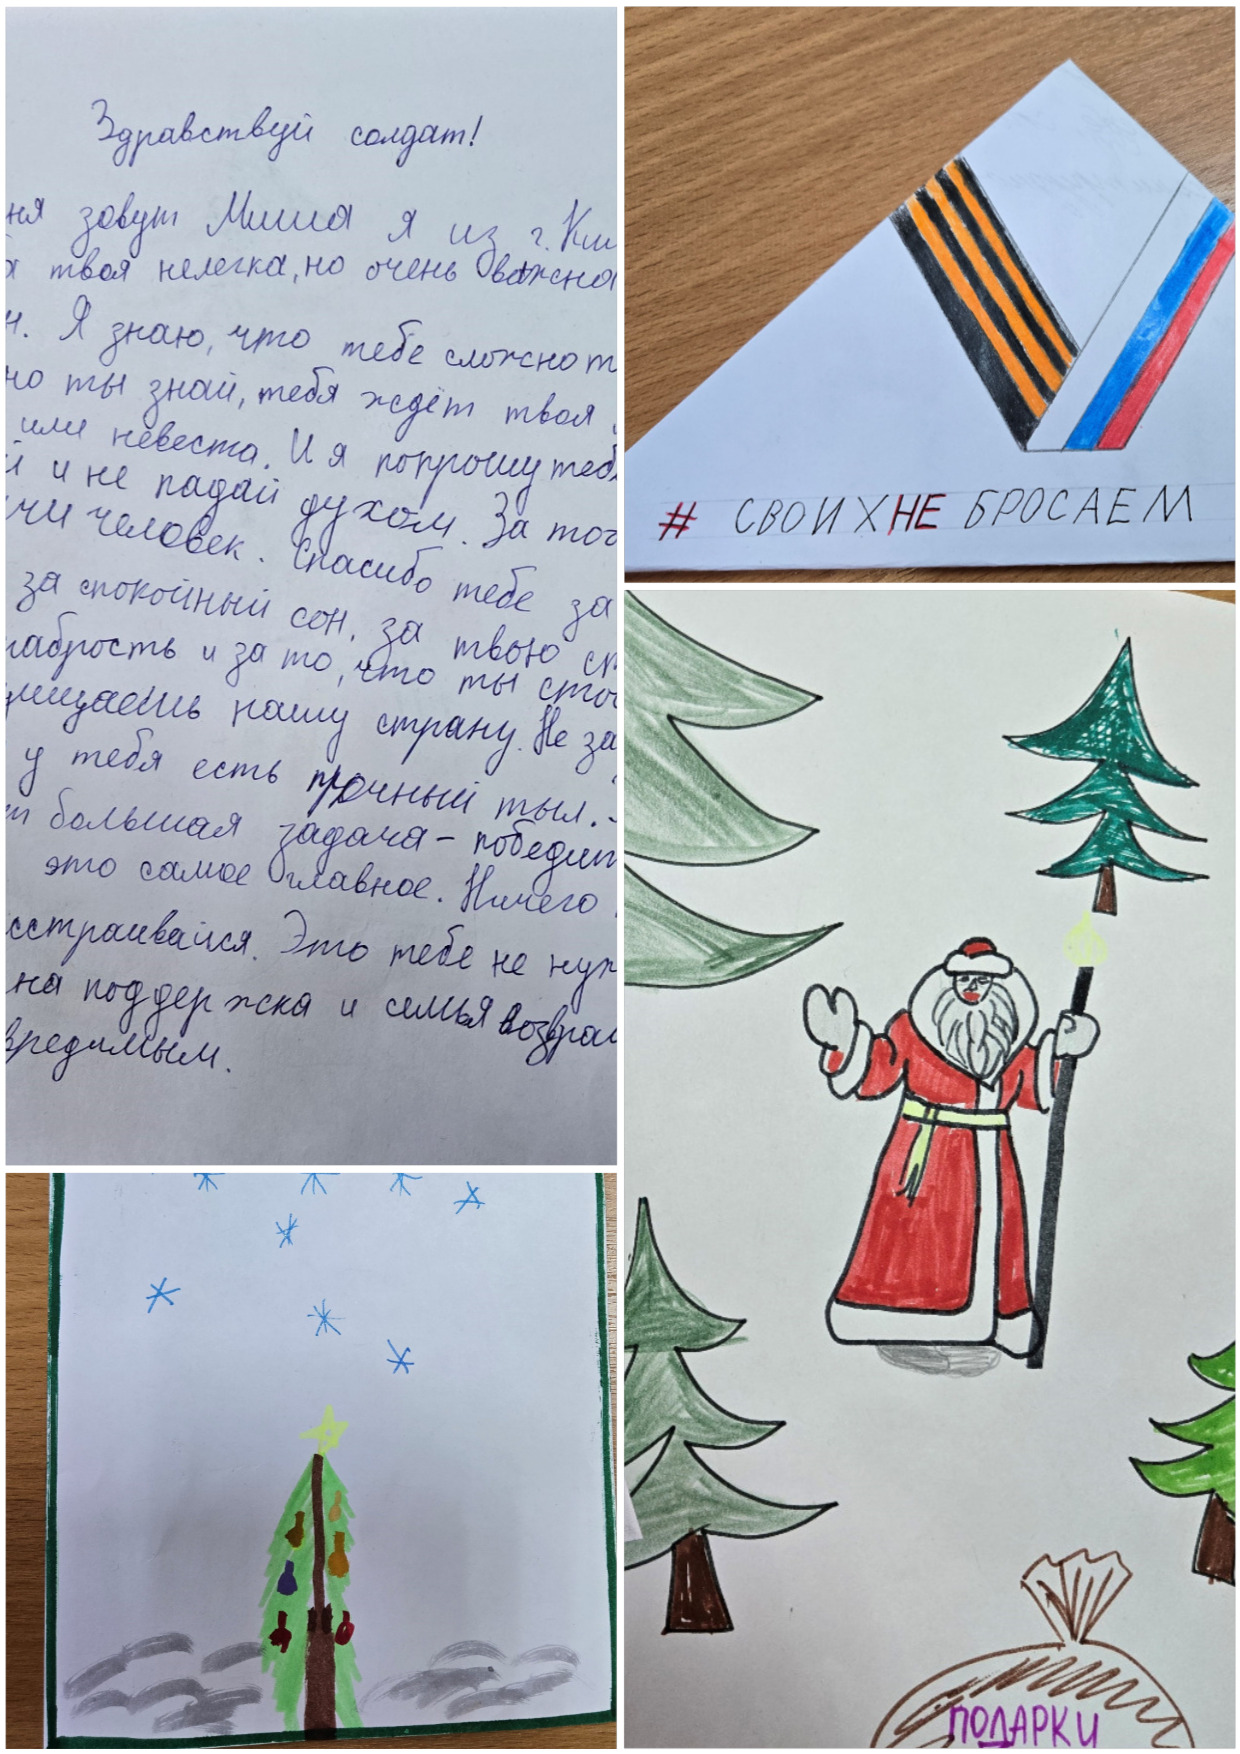 Здравствуй солдат!
ня зовут Миша я из г. Кли
твоя нелегка, но очень важна
н. Я знаю, что тебе сложно т
но ты знай, тебя ждёт твоя
или невеста. И я попрошу теб
й и не падай духом. За тоб
чи человек. Спасибо тебе за
за спокойный сон, за твою см
рабрость и за то, что ты стои
щищаешь нашу страну. Не за
у тебя есть прочный тыл.
т большая задача – победит
это самое главное. Ничего
сстраивайся. Это тебе не нуж
на поддержка и семья возвращ
вредимым.
# СВОИХ НЕ БРОСАЕМ
ПОДАРКИ